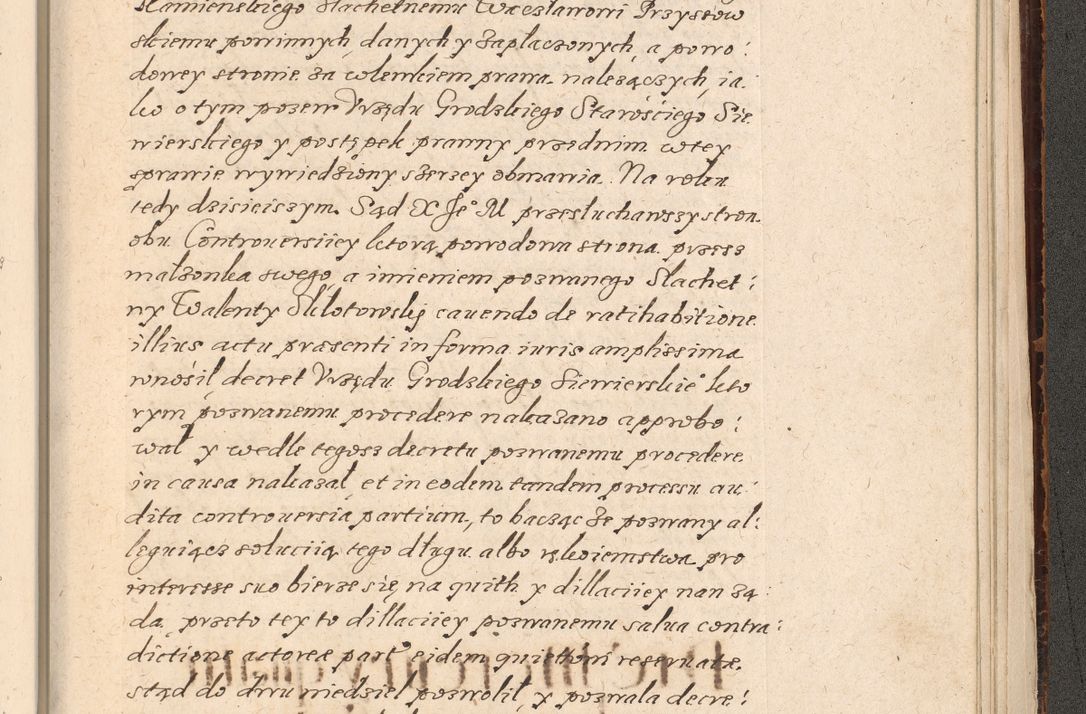 Kamienskiego Slachetnemu Wacesławowi Przystow
skiemu powinnych, danych y zapłaczonych, a powo:
dowey stronie za wlewkiem prawa należączych, ia
ko o tym pozew Vrzędu Grodzkiego Starościego Sie
wierskiego y postępek prawny przednim wtey
sprawie wywiedziony szerzey obmawia. Na roku
tedy dzisieiszym Sąd X Je° M przesłuchawszy stron
obu Controuersiiey ktorą powodowa strona przesz
małzonka swego, a imieniem pozwanego Slachet:
ny Walenty Skłotowsky cauendo de ratihabitione
illius actu præsenti in forma iuris amplissima
wnosił decret Vrzędu Grodzkiego Siewierskie° kto
rym pozwanemu procedere nakazano approbo:
wał y wedle tegosz decretu pozwanemu procedere
in causa nakazał, et in eodem tandem processu au
dita controuersia partium, to bacząc że pozwany al:
leguiącz soluciią tego długu albo rękoiemstwa pro
interesse suo bierze się na quith y dillaciiey nan żą
da, przeto tey to dillaciiey pozwanemu salua contra:
dictione actoreæ part eidem quietowi reseruatæ,
stąd do dwu niedziel pozwolił, y pozwala decre: